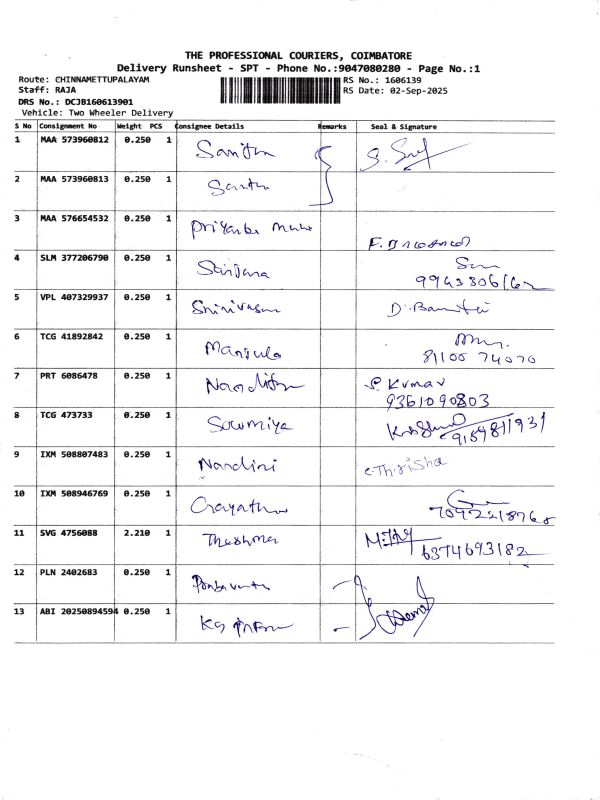 THE PROFESSIONAL COURIERS, COIMBATORE
Delivery Runsheet - SPT - Phone No.:9047080280 - Page No.:1
Route: CHINNAMETTUPALAYAM RS No.: 1606139
Staff: RAJA RS Date: 02-Sep-2025
DRS No.: DCJB160613901
Vehicle: Two Wheeler Delivery
S No Consignment No Weight PCS Consignee Details Remarks Seal & Signature
1 MAA 573960812 0.250 1
2 MAA 573960813 0.250 1
3 MAA 576654532 0.250 1 Priyanka
4 SLM 377206790 0.250 1 Sanjana
5 VPL 407329937 0.250 1 Srinivasan
6 TCG 41892842 0.250 1 Manjula
81100 74070
7 PRT 6086478 0.250 1 S. Kumar
9361090803
8 TCG 473733 0.250 1 Sowmiya
9159811931
9 IXM 508807483 0.250 1 Nandini C. Thirisha
10 IXM 508946769 0.250 1 Gayathri
11 SVG 4756088 2.210 1
6374693182
12 PLN 2402683 0.250 1
13 ABI 20250894594 0.250 1